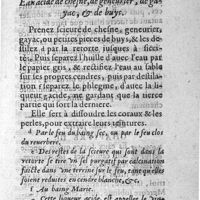 Eau acide de chesne, de geneurier, de ga-
yac, & de buys.
PRenez scieure de chesne, geneurier,
gayac, ou petites pieces de buys, & les di-
stilez d par la retorte jusques à sicci-
té. Puis separez l'huille d'avec l'eau par
le papier gris, & rectifiez l'eau au sable
sur les propres cendres, puis par destilla-
tion separez le phlegme, d'avec la li-
queur acide, en gardant que la tierce
partie qui sort la derniere.
Elle sert à dissoudre les coraux & les
perles, pour extraire leurs teintures.
d Par le feu du baing sec, ou par le feu clos
du reverbere.
e Des restes de la scieure qui sont dans la
retorte se tire un sel purgatif par calcination
faicte dans une terrine sur le feu, tant qu'elles
soient reduites en cendre blanche, &c.
f Au baing Marie.
Cette liqueur acide est appellée le